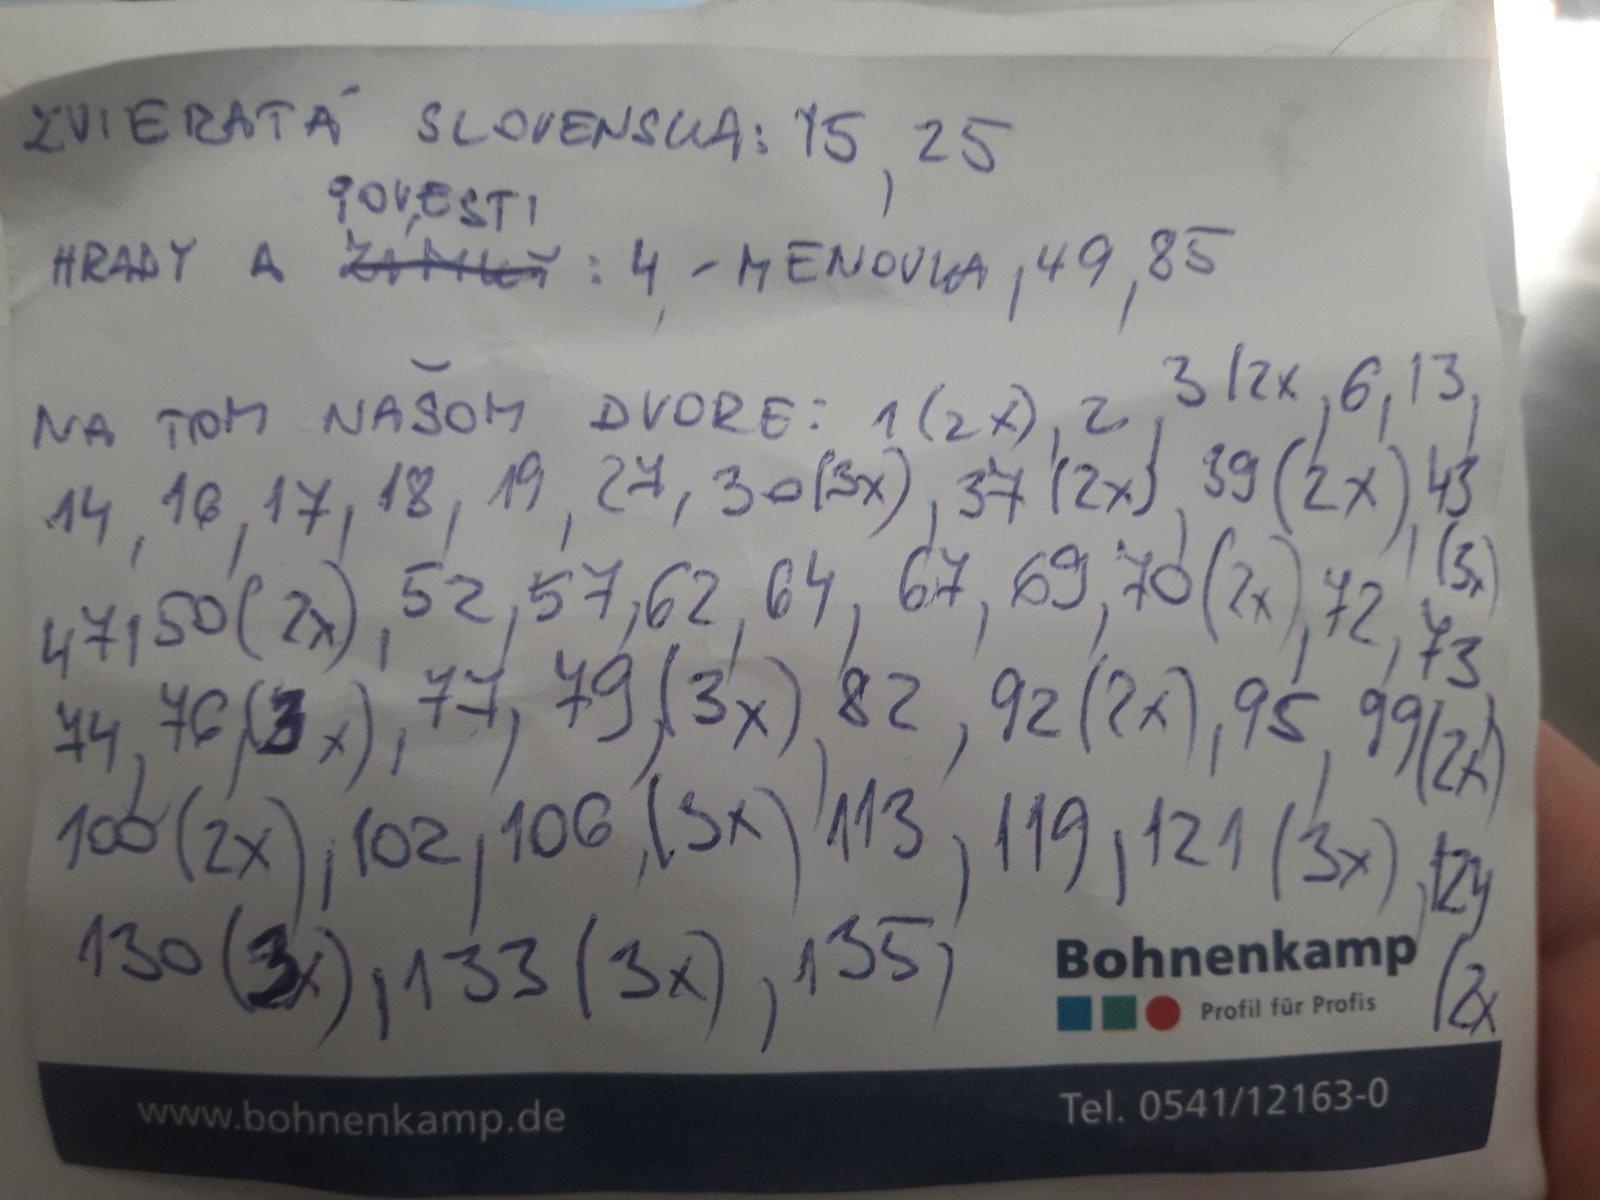 ZVIERATÁ SLOVENSKA: 15, 25
POVESTI
HRADY A : 4, - MENOVKA, 49, 85
NA TOM NAŠOM DVORE: 1(2x), 2, 3(2x, 6, 13,
14, 16, 17, 18, 19, 27, 30(3x), 37(2x), 39(2x), 43
(3x)
47, 50(2x), 52, 57, 62, 64, 67, 69, 70(2x), 72, 73
74, 76(3x), 77, 79,(3x), 82, 92(2x), 95, 99(2x)
100(2x), 102, 106,(3x) 113, 119, 121(3x), 124
(2x
130(3x), 133(3x), 135,
Bohnenkamp
Profil für Profis
www.bohnenkamp.de
Tel. 0541/12163-0